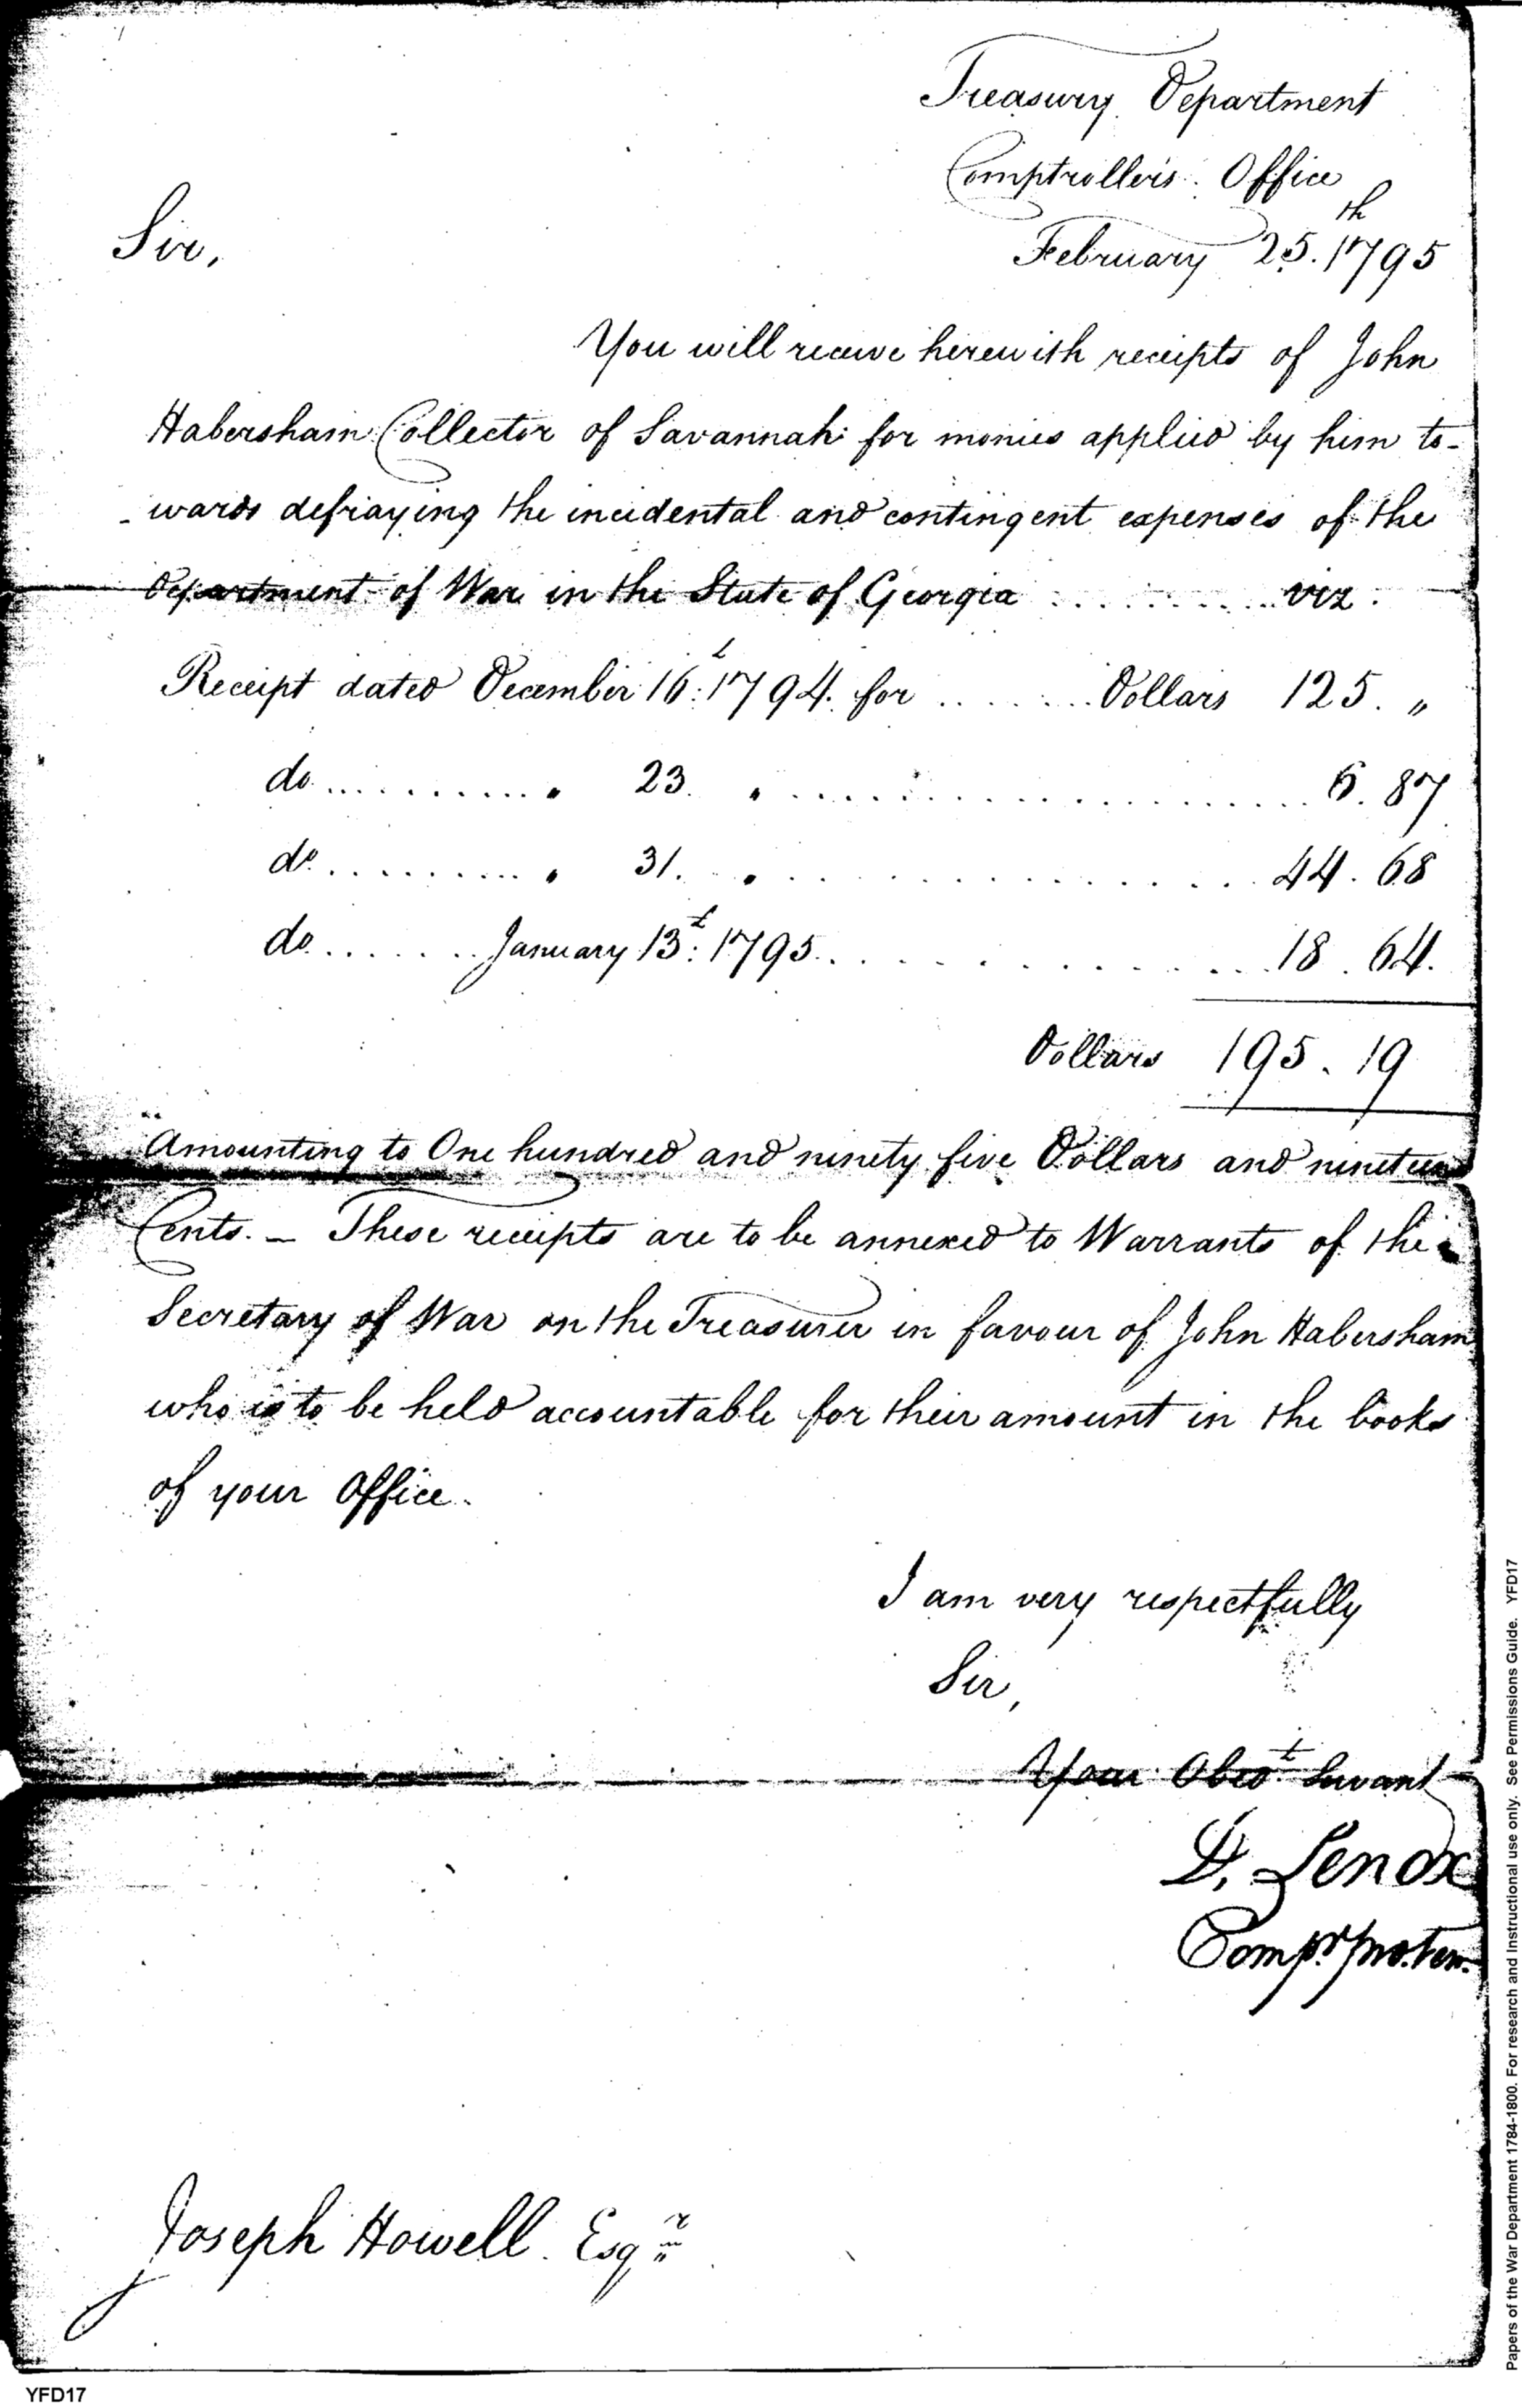 Treasury Department
Comptroller's Office
February 25th. 1795
Sir,
You will receive herewith receipts of John
Habersham Collector of Savannah for monies applied by him to-
-wards defraying the incidental and contingent expenses of the
Department of War in the State of Georgia .......... viz.
Receipt dated December 16t: 1794. for ....... Dollars 125. "
do .......... " 23. " .................... 6. 87
do .......... " 31. " .................... 44. 68
do ....... January 13t: 1795. ............. 18. 64.
Dollars 195. 19
Amounting to One hundred and ninety five Dollars and nineteen
Cents. — These receipts are to be annexed to Warrants of the
Secretary of War on the Treasurer in favour of John Habersham
who is to be held accountable for their amount in the books
of your Office.
I am very respectfully
Sir,
Your Obedt. Servant
D. Lenox
Compr. pro. tem.
Joseph Howell Esqr
Papers of the War Department 1784-1800. For research and Instructional use only. See Permissions Guide. YFD17
YFD17